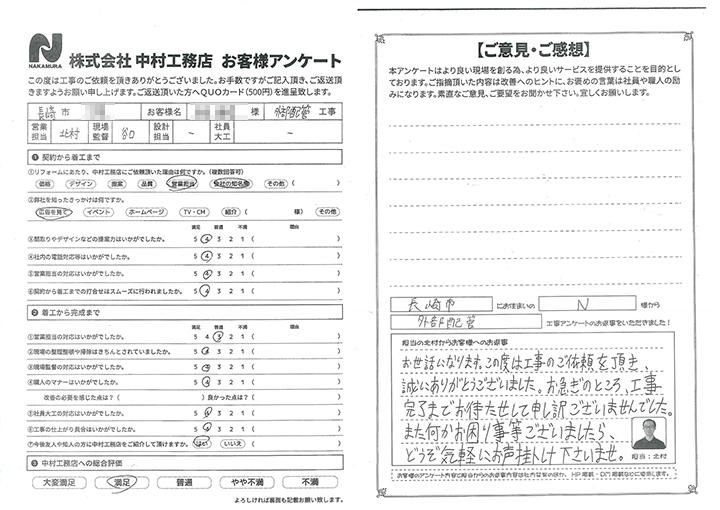 N
NAKAMURA
株式会社 中村工務店 お客様アンケート
この度は工事のご依頼を頂きありがとうございました。お手数ですがご記入頂き、ご返送頂
きますようお願い申し上げます。ご返送頂いた方へQUOカード(500円)を進呈致します。
長崎 市 お客様名 様 外部配管 工事
営業担当 北村 現場監督 谷口 設計担当 － 社員大工 －
❶ 契約から着工まで
①リフォームにあたり、中村工務店にご依頼頂いた理由は何ですか。(複数回答可)
価格 デザイン 提案 品質 営業担当 会社の知名度 その他( )
②弊社を知ったきっかけは何ですか。
広告を見て イベント ホームページ TV・CM 紹介( 様) その他
満足 普通 不満 理由
③間取りやデザインなどの提案力はいかがでしたか。 5 4 3 2 1 ( )
④社内の電話対応等はいかがでしたか。 5 4 3 2 1 ( )
⑤営業担当の対応はいかがでしたか。 5 4 3 2 1 ( )
⑥契約から着工までの打合せはスムーズに行われましたか。 5 4 3 2 1 ( )
❷ 着工から完成まで
満足 普通 不満 理由
①営業担当の対応はいかがでしたか。 5 4 3 2 1 ( )
②現場の整理整頓や掃除はきちんとされていましたか。 5 4 3 2 1 ( )
③現場監督の対応はいかがでしたか。 5 4 3 2 1 ( )
④職人のマナーはいかがでしたか。 5 4 3 2 1 ( )
改善の必要を感じた点は?( ) 良かった点は?( )
⑤社員大工の対応はいかがでしたか。 5 4 3 2 1 ( )
⑥工事の仕上がり具合はいかがでしたか。 5 4 3 2 1 ( )
⑦今後友人や知人の方に中村工務店をご紹介して頂けますか。 はい いいえ ( )
❸ 中村工務店への総合評価
大変満足 満足 普通 やや不満 不満
よろしければ裏面も記載お願い致します。
【ご意見・ご感想】
本アンケートはより良い現場を創る為、より良いサービスを提供することを目的とし
ております。ご指摘頂いた内容は改善へのヒントに、お褒めの言葉は社員や職人の励
みになります。素直なご意見、ご要望をお聞かせ下さい。宜しくお願い致します。
長崎市 にお住まいの N 様から
外部配管 工事アンケートのお返事をいただきました!
担当の北村からお客様へのお返事
お世話になります。この度は工事のご依頼を頂き、
誠にありがとうございました。お急ぎのところ、工事
完了までお待たせして申し訳ございませんでした。
また何かお困り事等ございましたら、
どうぞ気軽にお声掛け下さいませ。
担当:北村